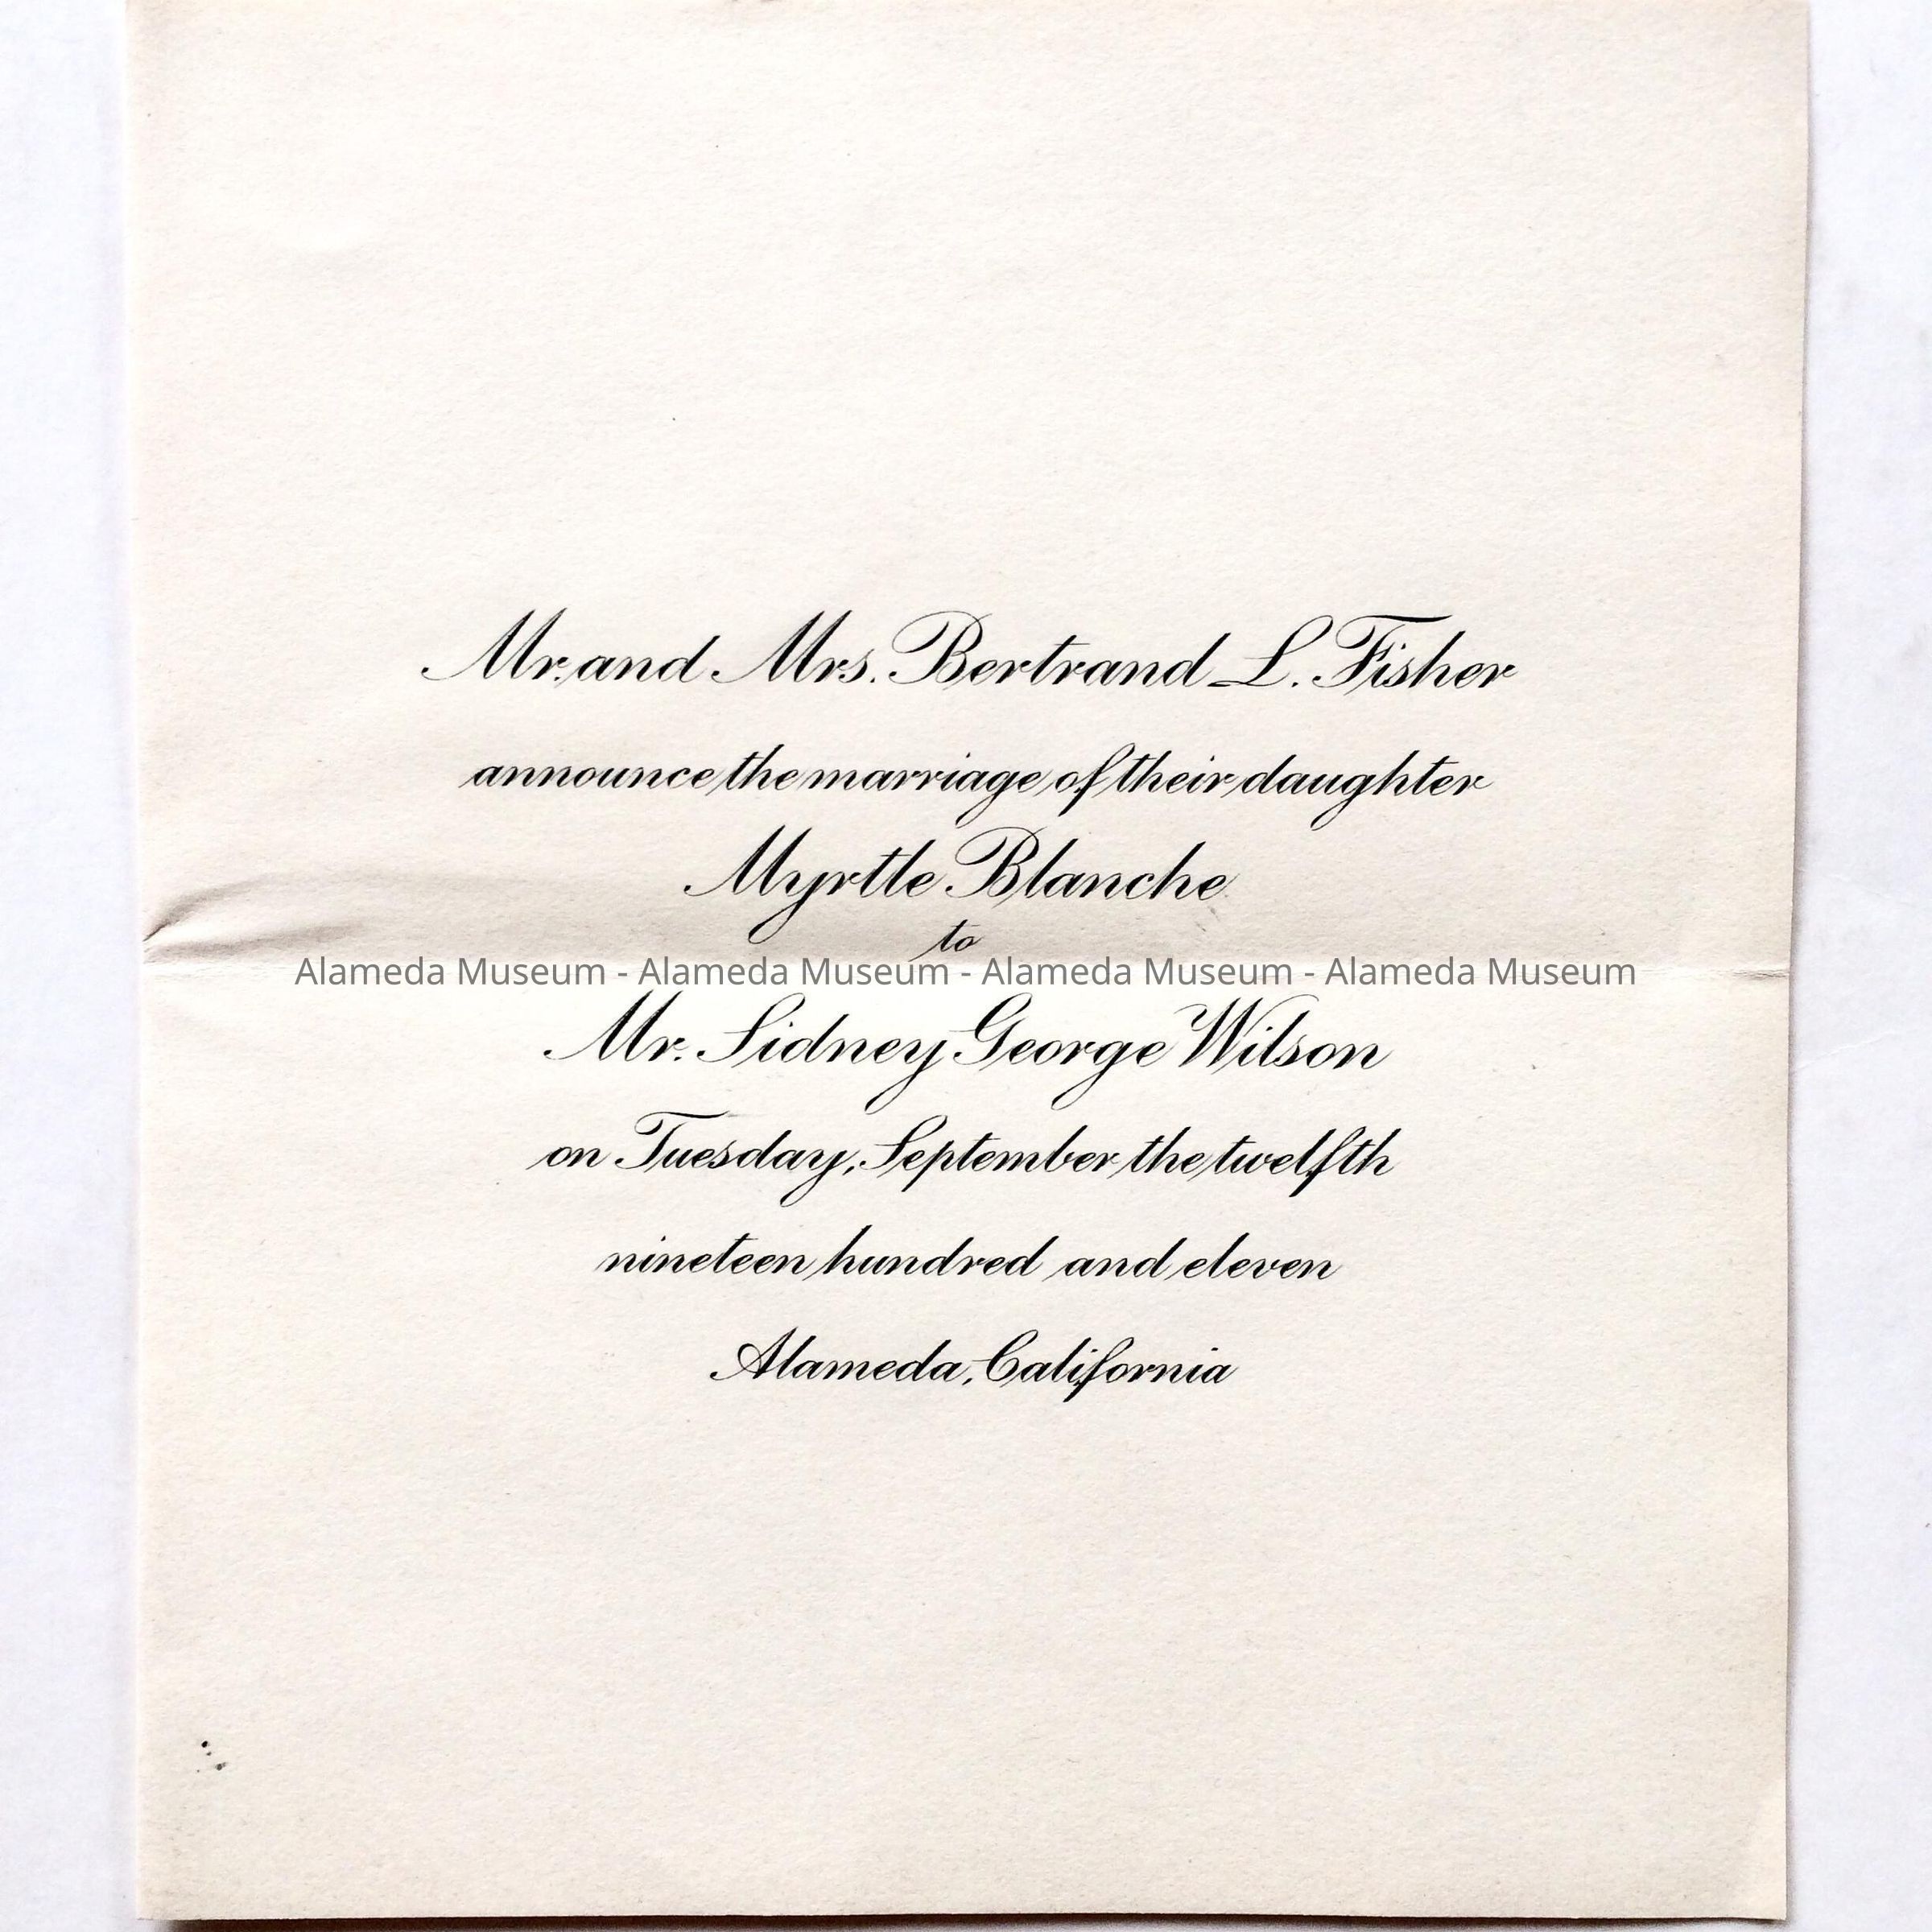 Mr. and Mrs. Bertrand L. Fisher
announce the marriage of their daughter
Myrtle Blanche
to
Alameda Museum - Alameda Museum - Alameda Museum - Alameda Museum
Mr. Sidney George Wilson
on Tuesday, September the twelfth
nineteen hundred and eleven
Alameda, California